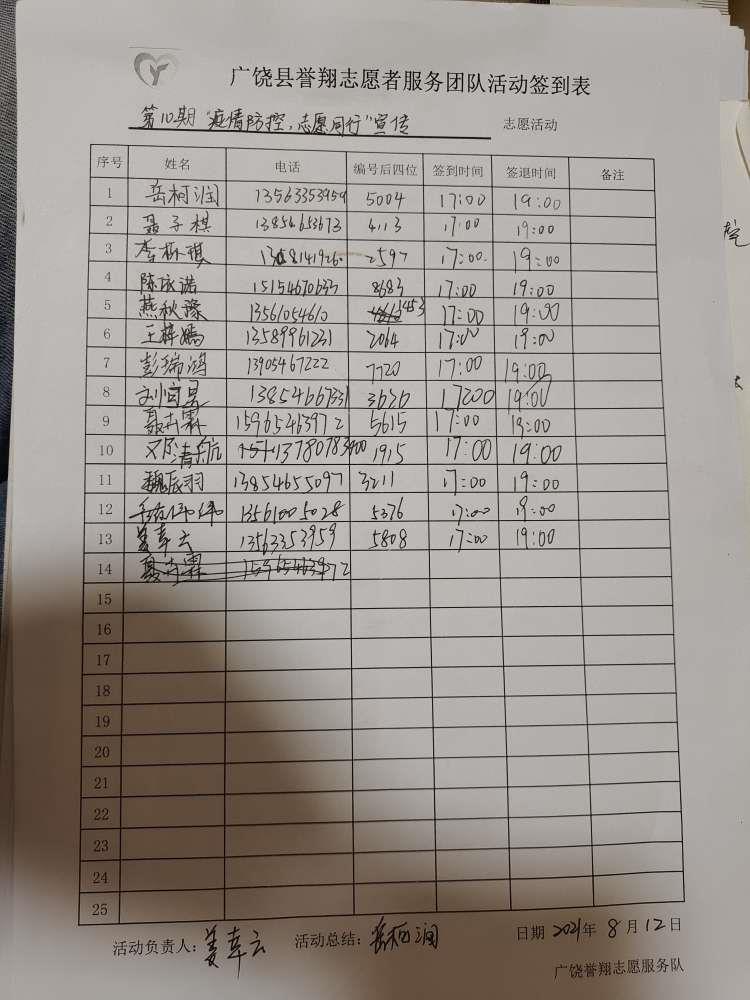 广饶县誉翔志愿者服务团队活动签到表
第10期“疫情防控,志愿同行”宣传 志愿活动
序号 姓名 电话 编号后四位 签到时间 签退时间 备注
1 岳柯润 13563353959 5004 17:00 19:00
2 聂子棋 13854653673 4113 17:00 19:00
3 李林琪 2597 17:00 19:00
4 陈泳诺 15154670633 8683 17:00 19:00
5 燕秋豫 13561054610 1453 17:00 19:00
6 王梓嫣 13589961231 2064 17:00 19:00
7 彭瑞鸿 13905467222 7720 17:00 19:00
8 13854667331 3636 17:00 19:00
9 聂卉霖 15965463972 5615 17:00 19:00
10 邓清航 1915 17:00 19:00
11 魏辰羽 13854655097 3211 17:00 19:00
12 13561005028 5376 17:00 19:00
13 姜幸云 13563353959 5808 17:00 19:00
14 聂卉霖 15965463972
15
16
17
18
19
20
21
22
23
24
25
活动负责人:姜幸云 活动总结:岳柯润 日期 2021年 8月12日
广饶誉翔志愿服务队